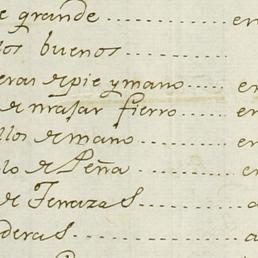 e grande ........... en
los buenos ...........
eras de pie y mano ..... en
de majar fierro ..... en
llos de mano ......... en
lo de Peña ............ en
de Terrazas ............ a
deras ................. a